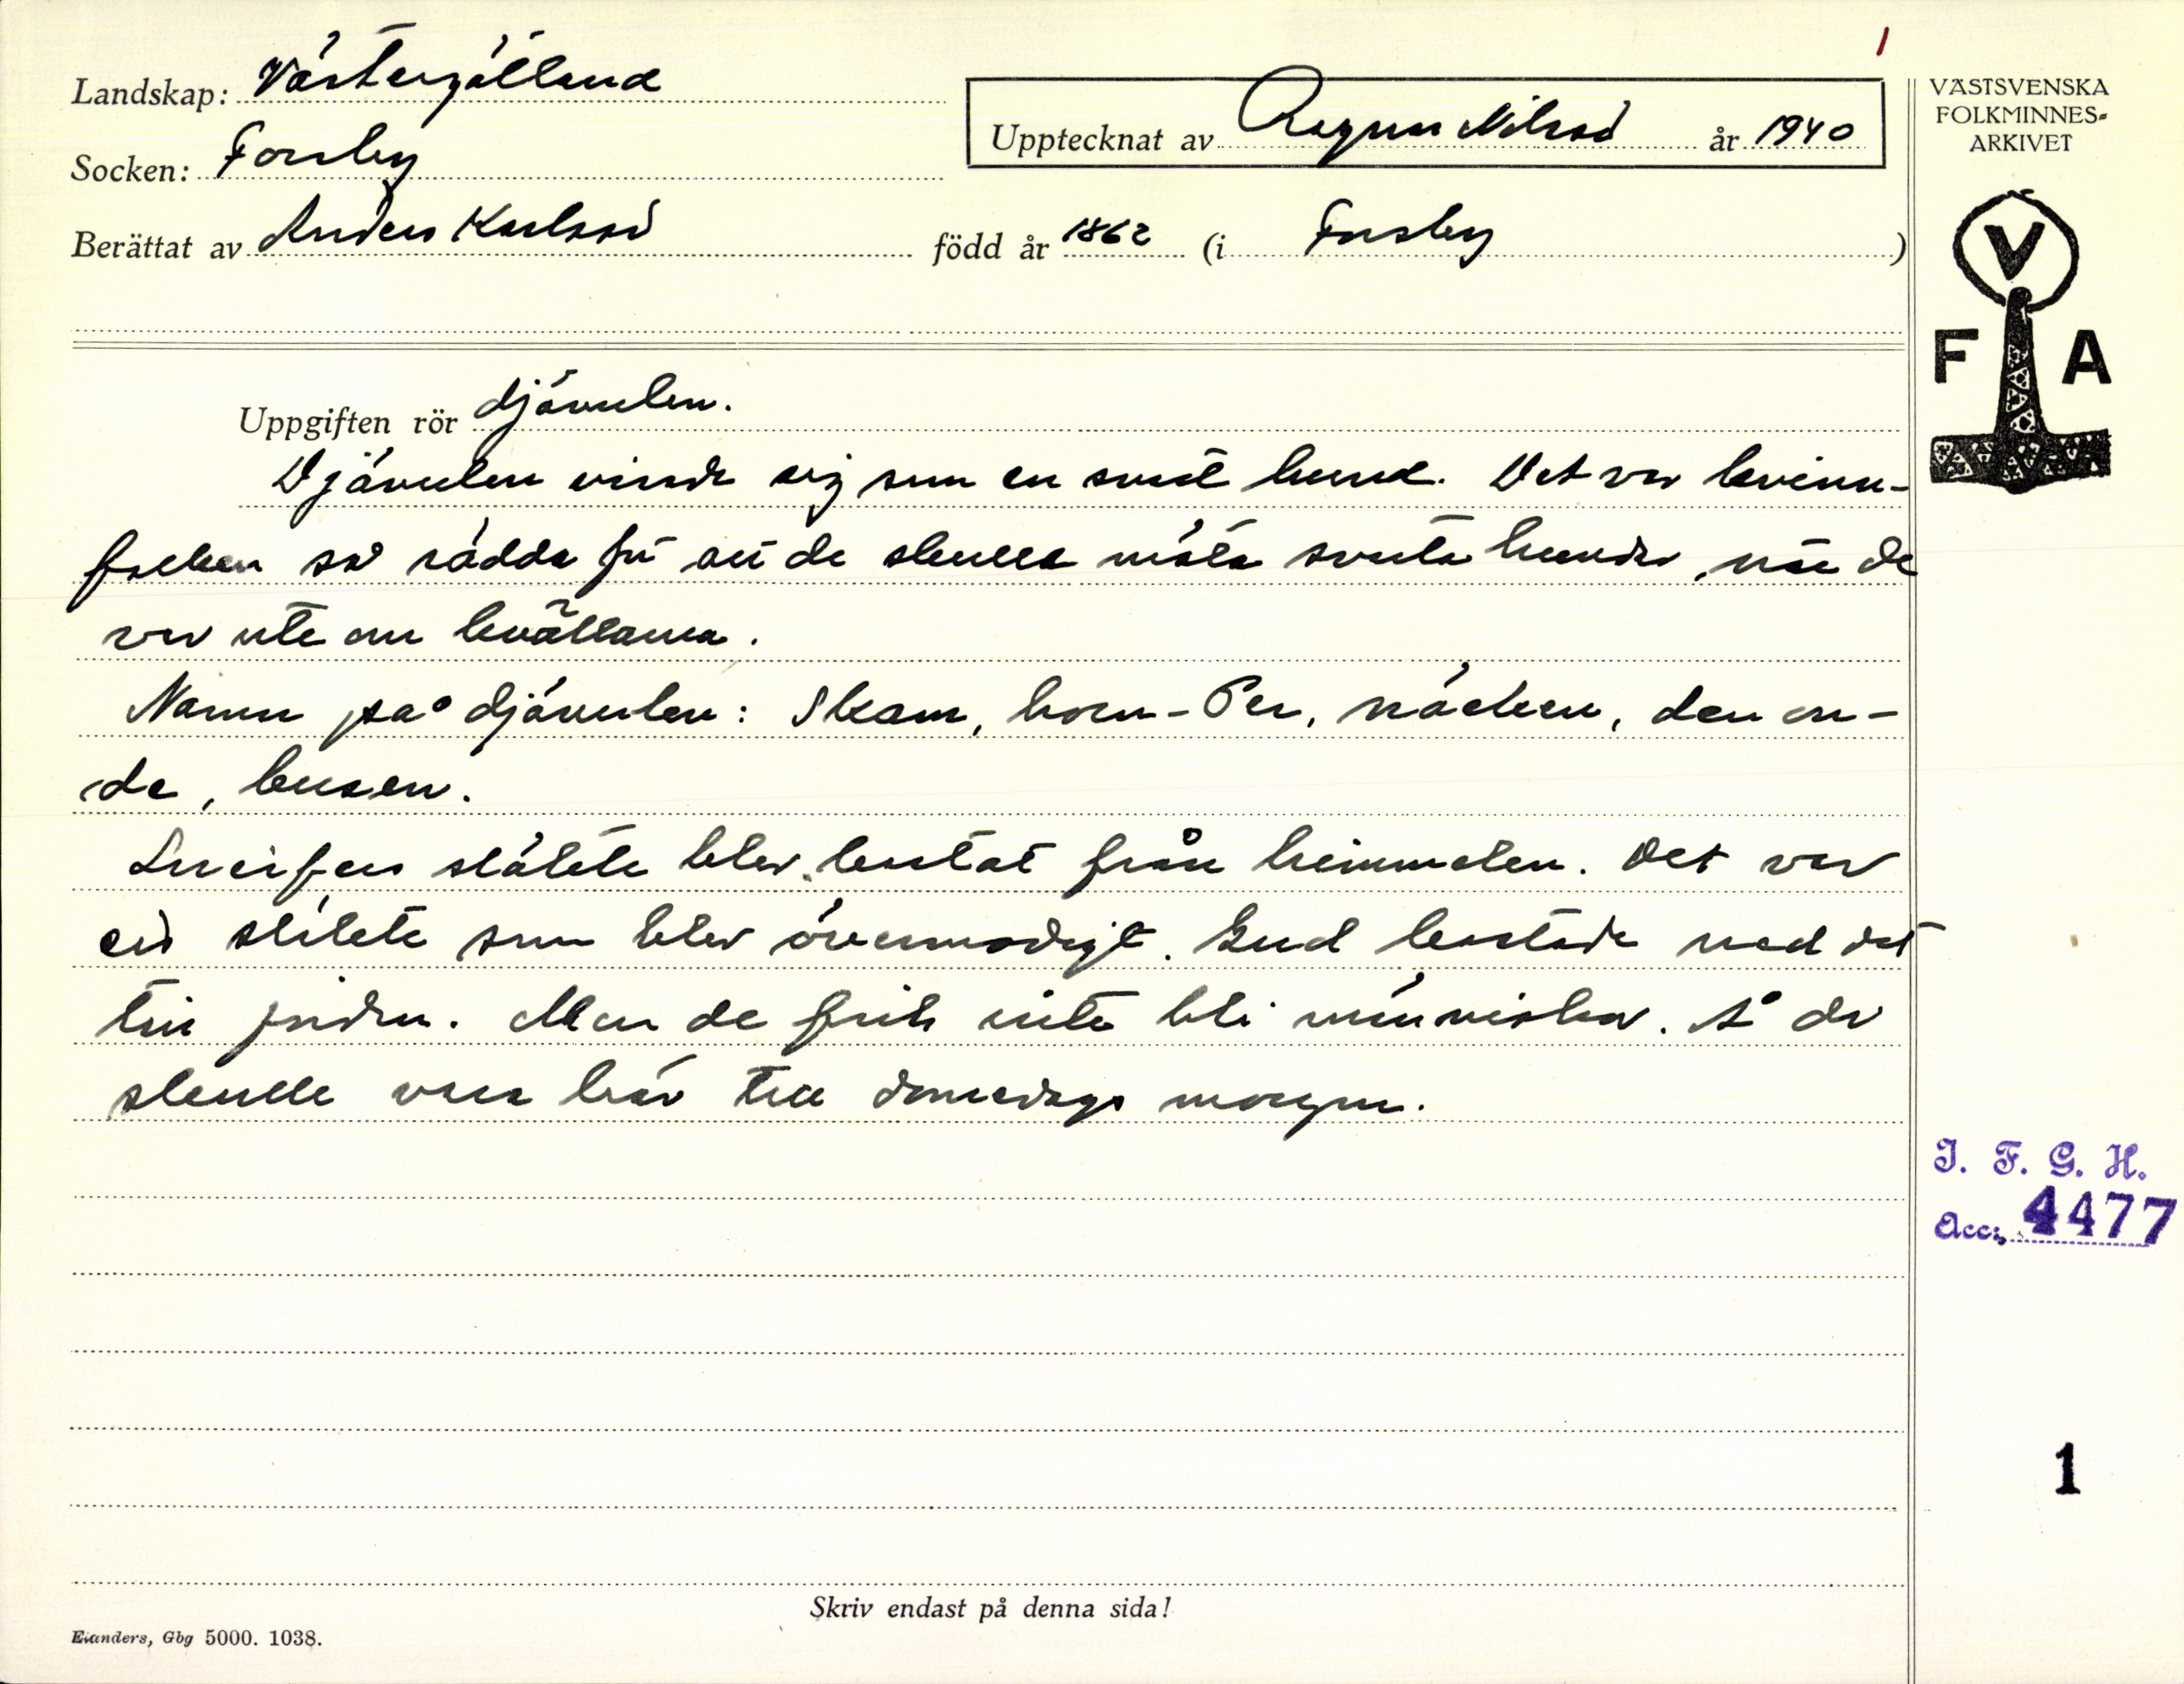 1
Landskap: Västergötland
VÄSTSVENSKA
FOLKMINNES=
ARKIVET
Upptecknat av Ragnar Nilsson år 1940
Socken: Forsby
Berättat av Anders Karlsson född år 1862 (i Forsby)
V
F A
Uppgiften rör djävulen.
Djävulen visade sig som en svart hund. Det var kvinn-
folken så rädda för att de skulle möta svarta hundar, när de
var ute om kvällarna.
Namn på djävulen: Skam, horn-Per, näcken, den on-
de, busen.
Lucifers släkte blev kastat från himmelen. Det var
ett släkte som blev övermodigt. Gud kastade ned det
till jorden. Men de fick inte bli människor. Å de
skulle vara här till domedags morgon.
I. F. G. H.
Acc: 4477
1
Skriv endast på denna sida!
Elanders, Gbg 5000. 1038.